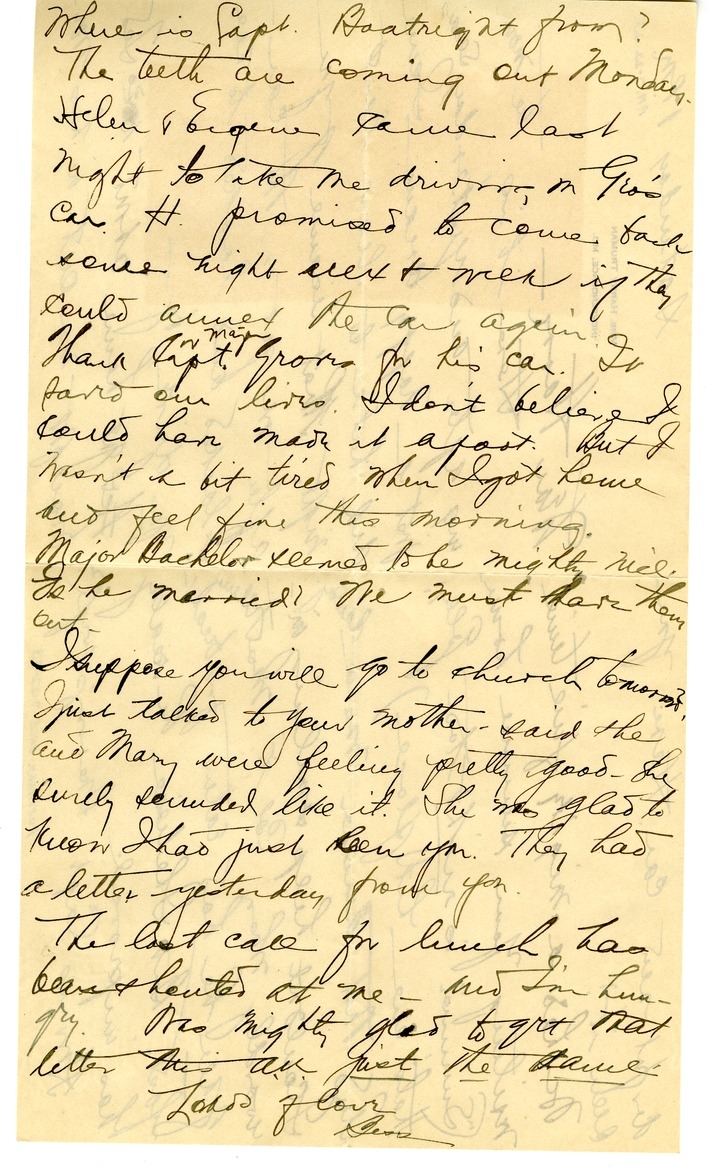 Where is Capt. Boatright from?
The teeth are coming out Monday.
Helen & Eugene came last
night to take me driving in Geo's
car. H. promised to come back
some night next week if they
could annex the car again.
Thank Capt. or Major Groves for his car. It
saved our lives. I don't believe I
could have made it afoot. But I
wasn't a bit tired when I got home
and feel fine this morning.
Major Bachelor seemed to be mighty nice.
Is he married? We must have them
out.
I suppose you will go to church tomorrow?
I just talked to your mother - said she
and Mary were feeling pretty good - they
surely sounded like it. She was glad to
know I had just seen you. They had
a letter yesterday from you.
The last call for lunch has
been shouted at me - and I'm hun-
gry. Was mighty glad to get that
letter this am just the same.
Loads of love
Bess